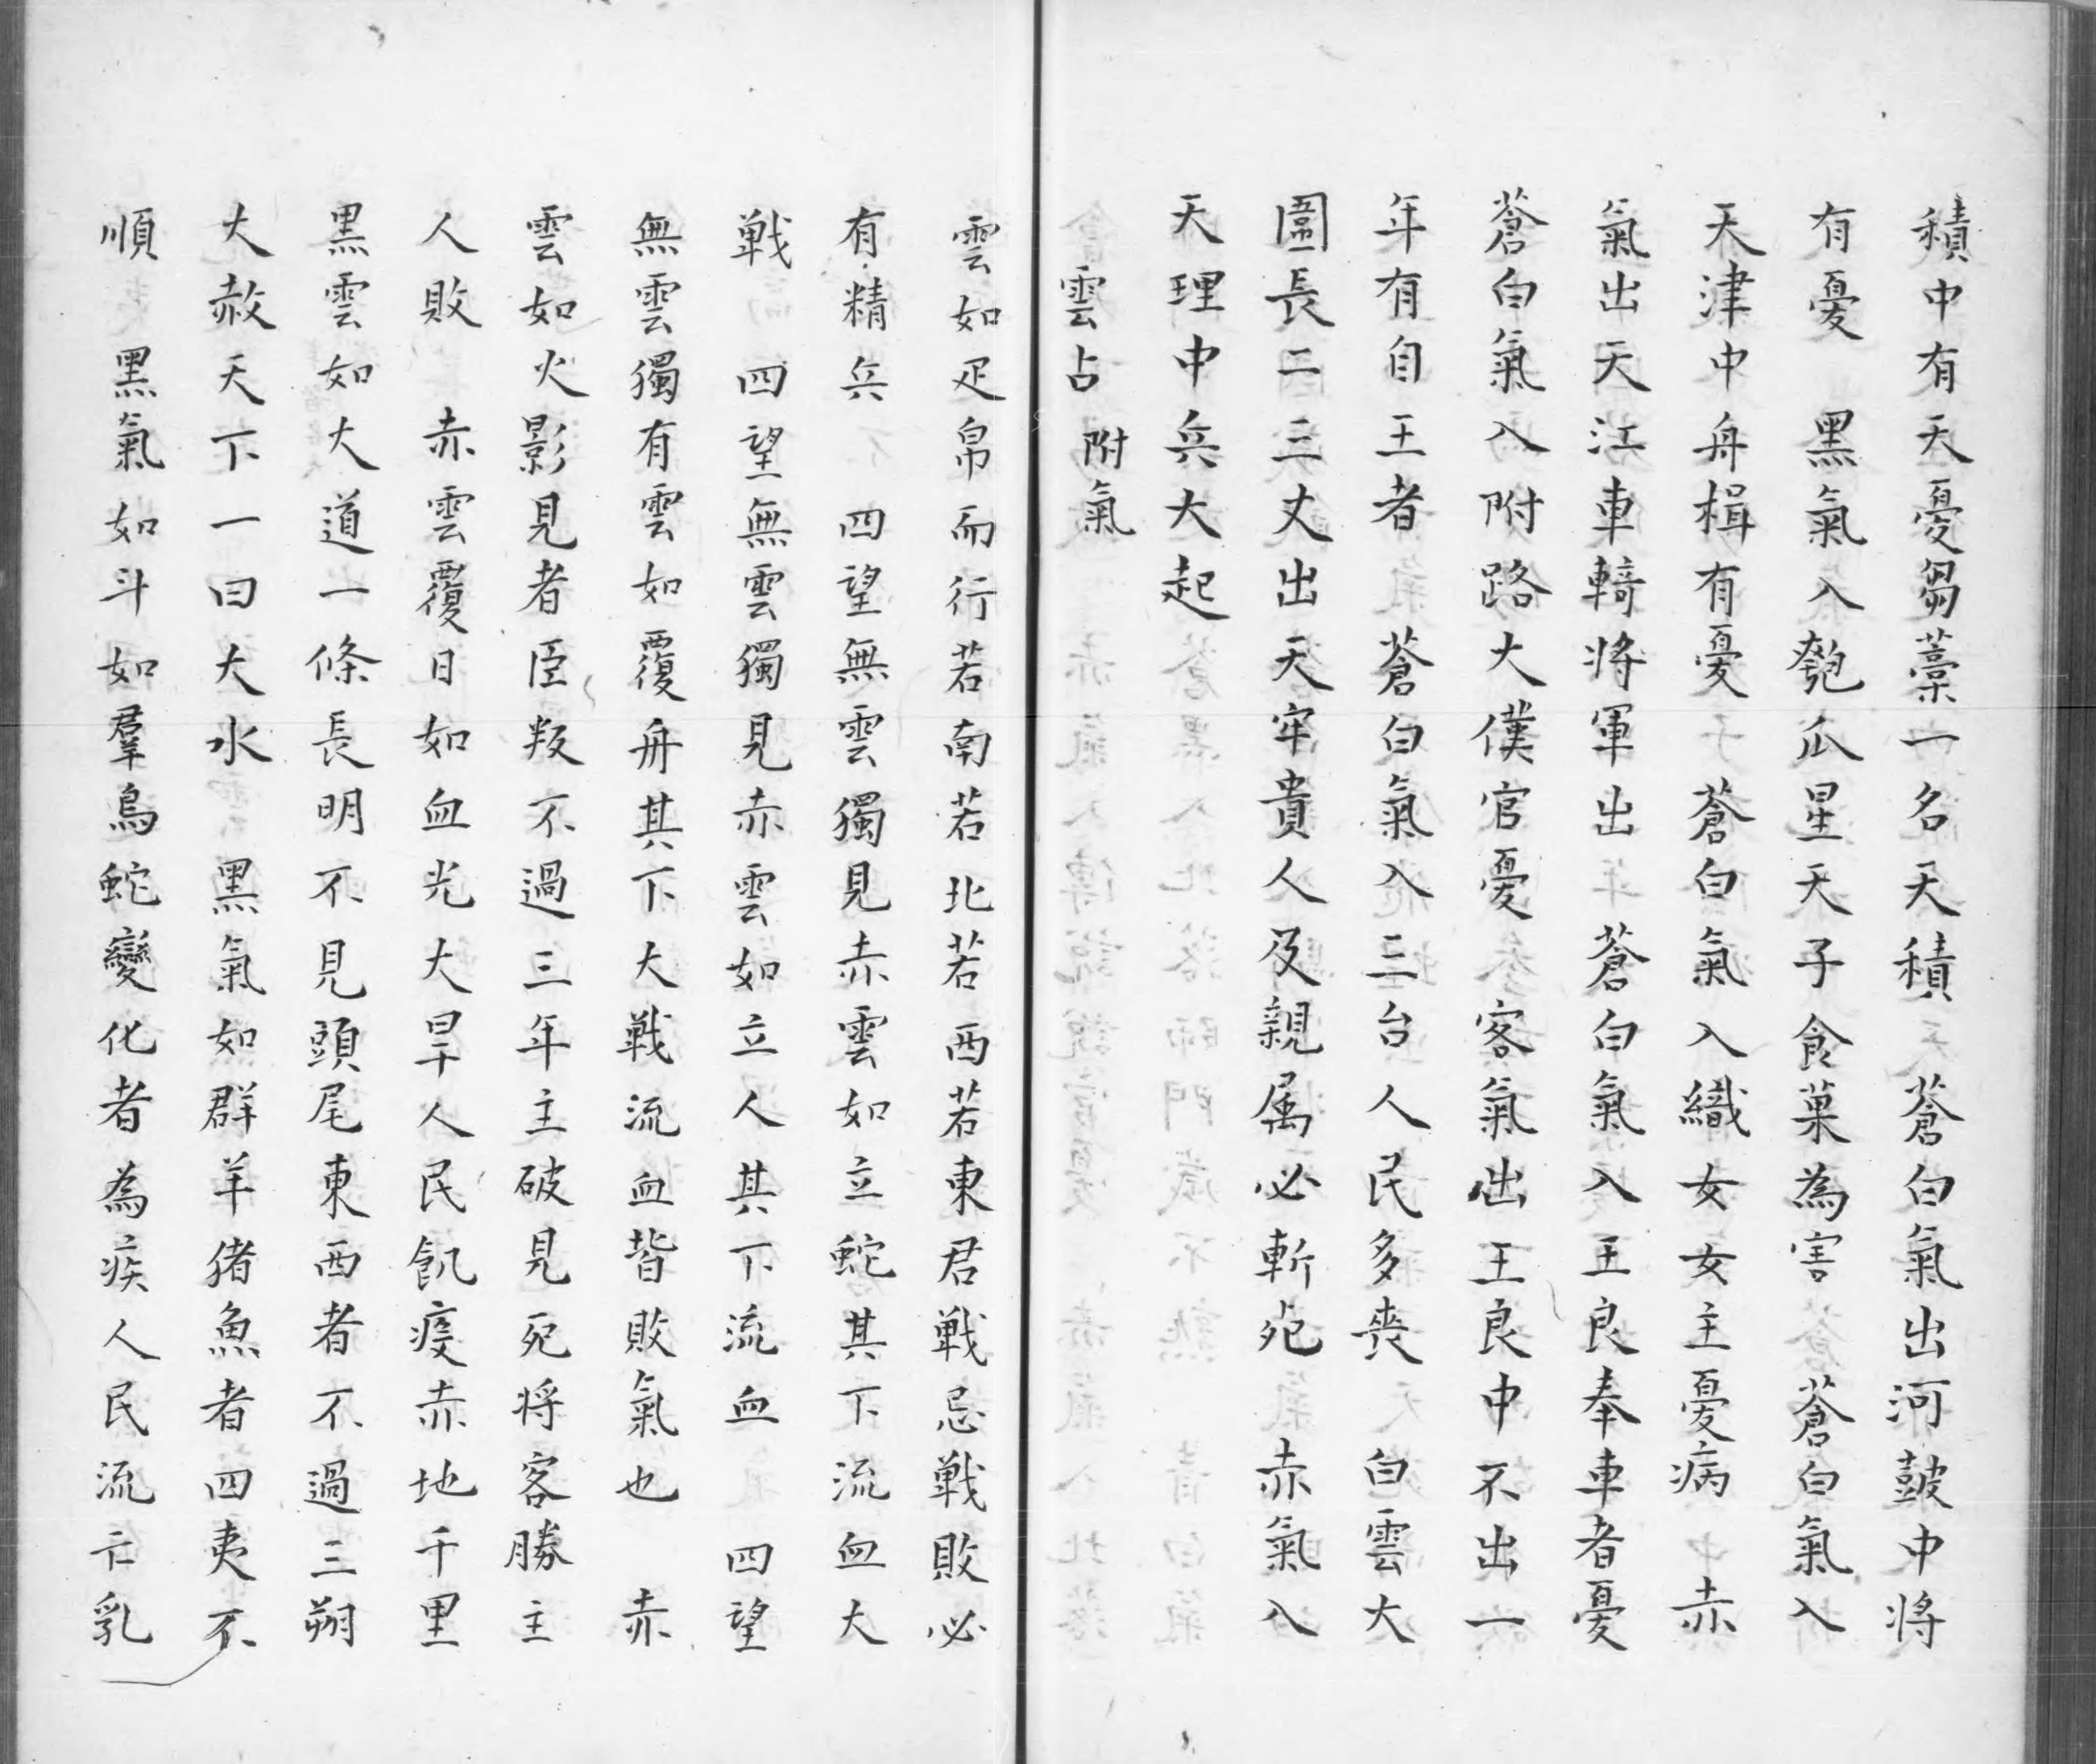 積中有天憂蒭藁一名天積　蒼白氣出河鼓中将
有憂　黑氣入匏瓜星天子食菓為害　蒼白氣入
天津中舟楫有憂　蒼白氣入織女女主憂病　赤
氣出天江車輢将軍出　蒼白氣入王良奉車者憂
蒼白氣入附路大僕官憂　客氣出王良中不出一
年有自王者　蒼白氣入三台人民多喪　白雲大
圍長二三丈出天牢貴人及親属必斬死　赤氣入
天理中兵大起
雲占　附氣
雲如疋帛而行若南若北若西若東君戦忌戦敗必
有精兵　四望無雲獨見赤雲如立蛇其下流血大
戦　四望無雲獨見赤雲如立人其下流血　四望
無雲獨有雲如覆舟其下大戦流血皆敗氣也　赤
雲如火影見者臣叛不過三年主破見死将客勝主
人敗　赤雲覆日如血光大旱人民飢疫赤地千里
黒雲如大道一條長明不見頭尾東西者不過三朔
大赦天下一曰大水　黑氣如群羊猪魚者四夷不
順　黑氣如斗如羣鳥蛇變化者為疾人民流亡乳